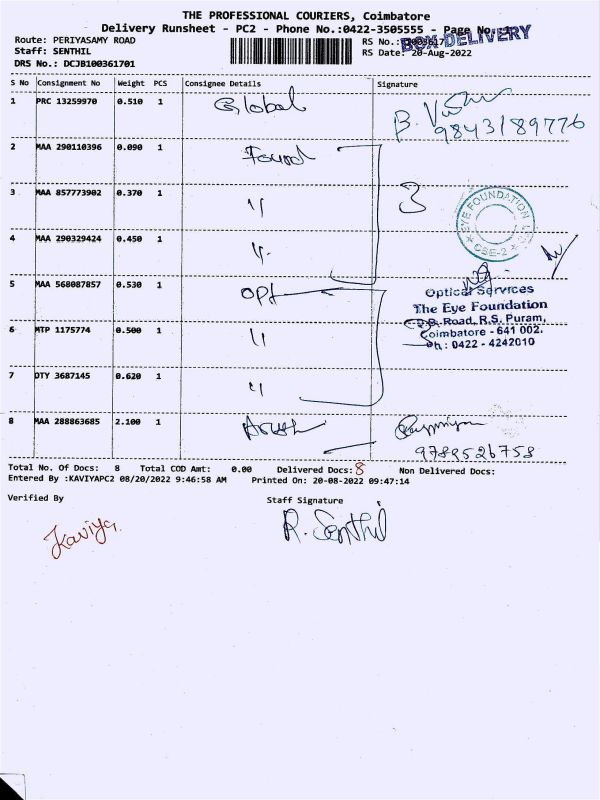 THE PROFESSIONAL COURIERS, Coimbatore
Delivery Runsheet - PC2 - Phone No.:0422-3505555 - Page No. 1
BOX DELIVERY
Route: PERIYASAMY ROAD
RS No.:
Staff: SENTHIL
RS Date: 20-Aug-2022
DRS No.: DCJB100361701
S No Consignment No Weight PCS Consignee Details Signature
1 PRC 13259970 0.510 1 Global B.
9843189776
2 MAA 290110396 0.090 1 Found
3 MAA 857773902 0.370 1 " 3
EYE FOUNDATION
CBE-2
4 MAA 290329424 0.450 1 "
5 MAA 568087857 0.530 1 Opt
Optical Services
The Eye Foundation
D.B. Road, R.S. Puram,
6 MTP 1175774 0.500 1 " 3
Coimbatore - 641 002.
Ph : 0422 - 4242010
7 DTY 3687145 0.620 1 "
8 MAA 288863685 2.100 1
9789526758
Total No. Of Docs: 8 Total COD Amt: 0.00 Delivered Docs: 8 Non Delivered Docs:
Entered By :KAVIYAPC2 08/20/2022 9:46:58 AM Printed On: 20-08-2022 09:47:14
Verified By Staff Signature
Kaviya. R. Senthil